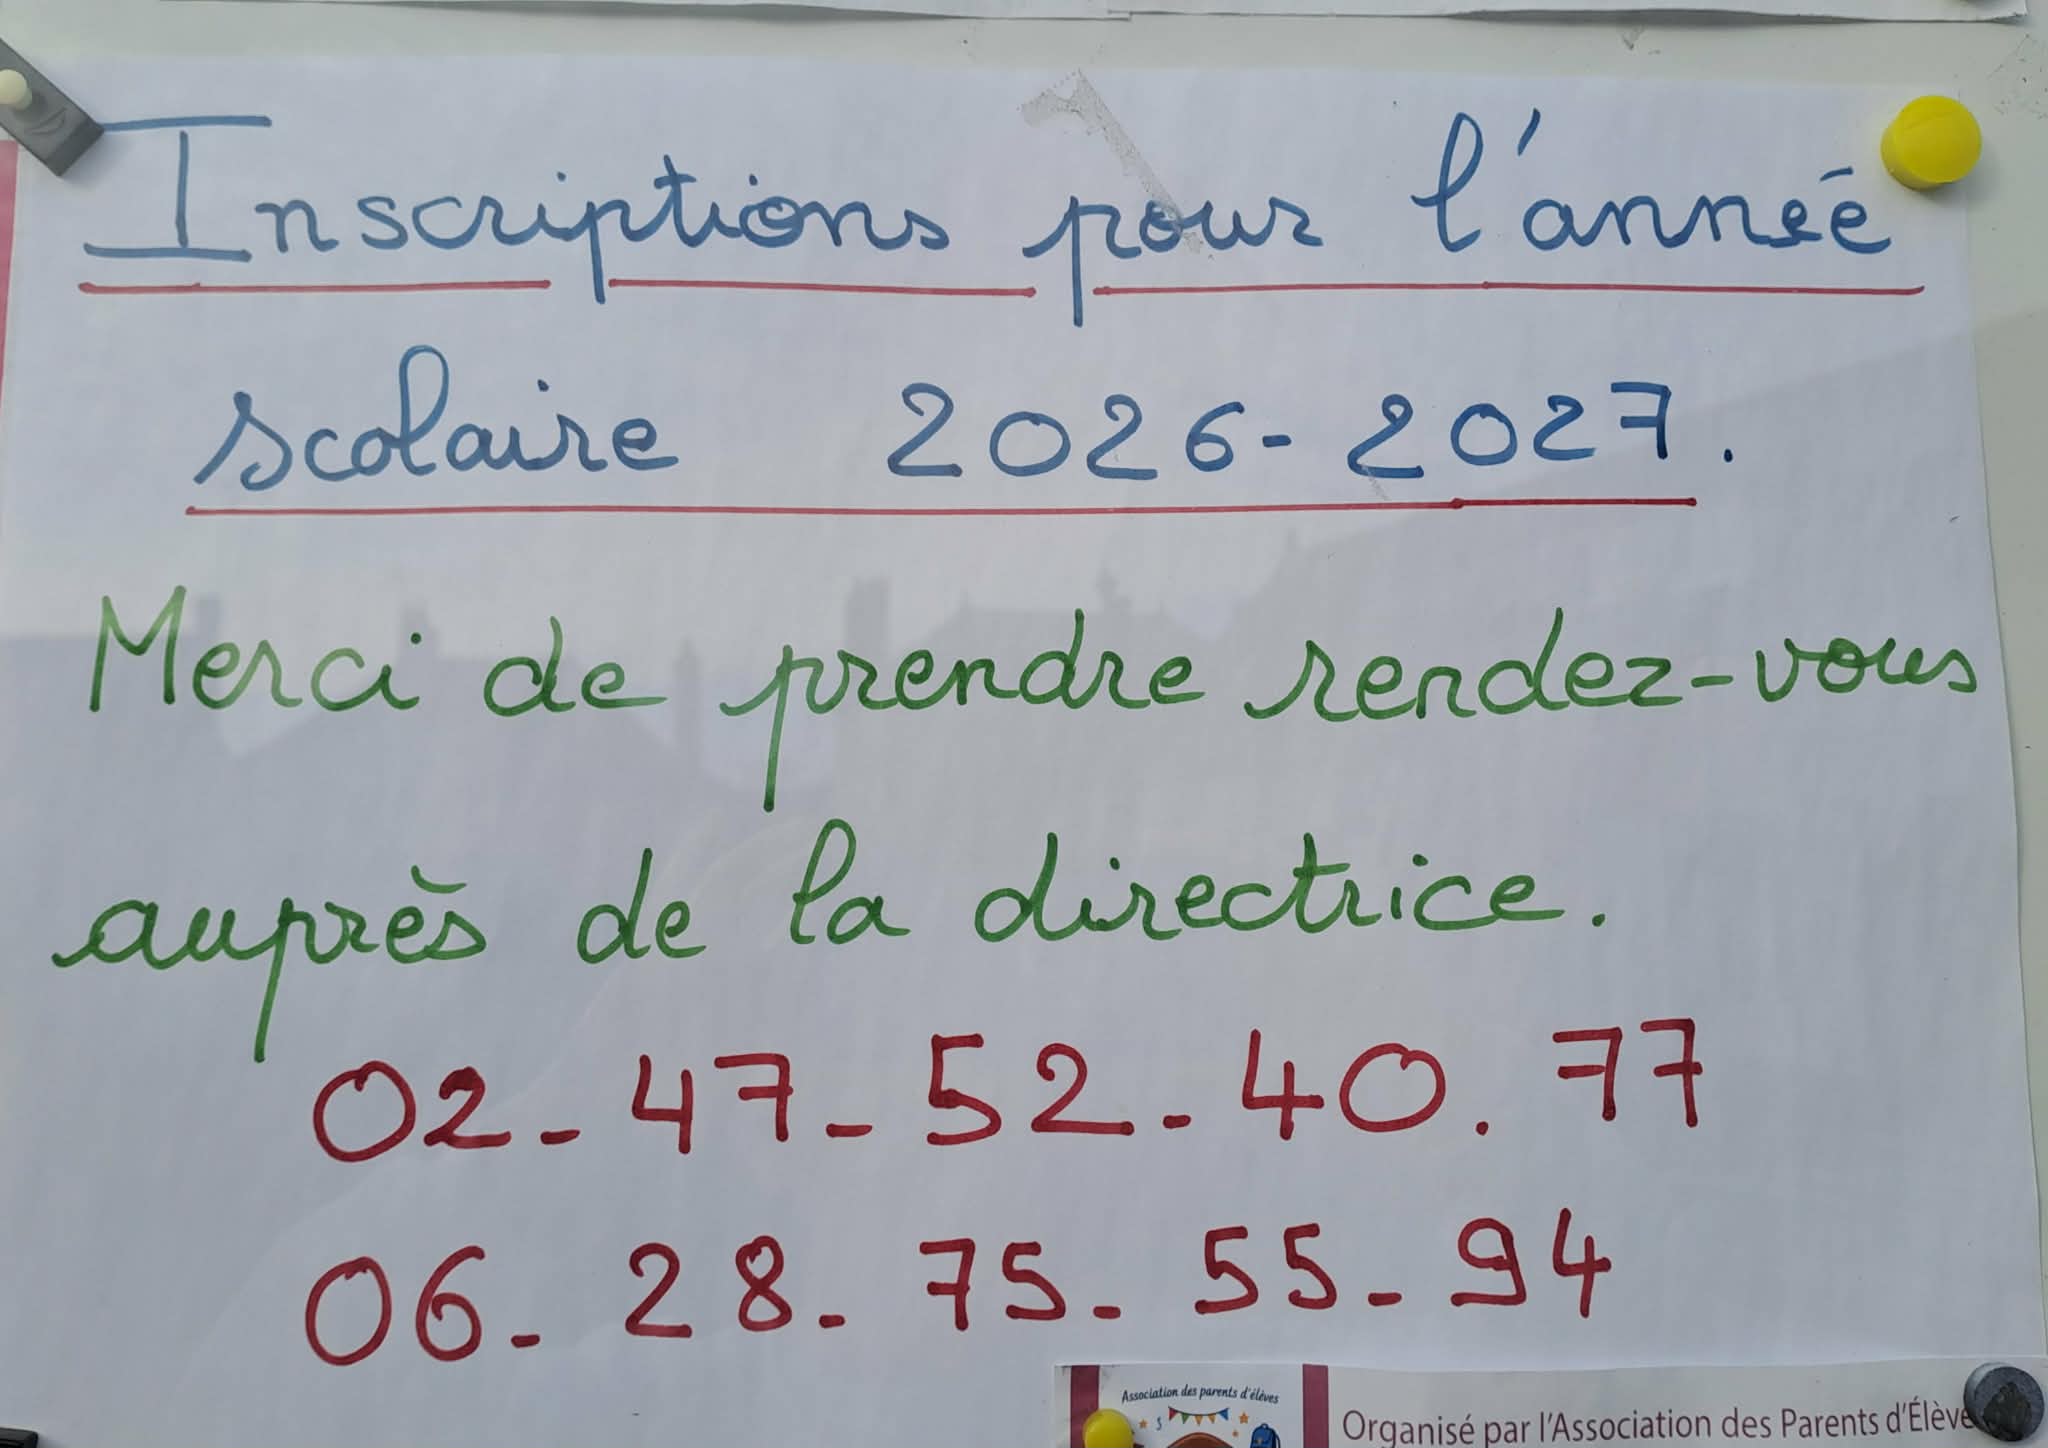 Inscriptions pour l'année
scolaire 2026-2027.
Merci de prendre rendez-vous
auprès de la directrice.
02-47-52-40.77
06-28-75-55-94
Association des parents d'élèves
Organisé par l'Association des Parents d'Élève